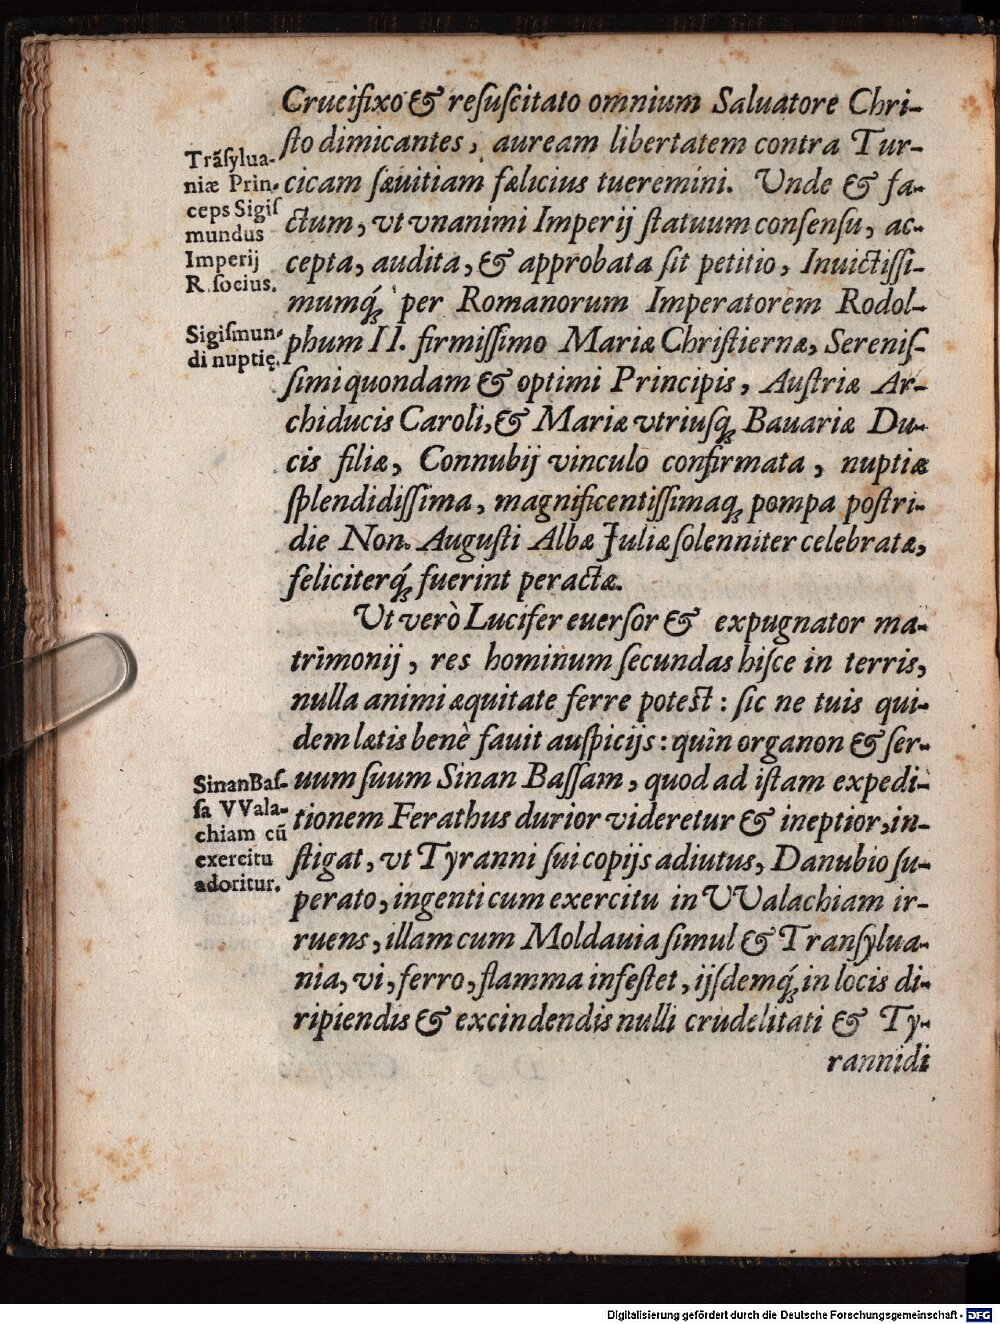 Crucifixo & reſuſcitato omnium Saluatore Chri-
ſto dimicantes, auream libertatem contra Tur-
cicam ſæuitiam fælicius tueremini. Unde & fa-
ctum, vt vnanimi Imperij ſtatuum conſenſu, ac-
cepta, audita, & approbata ſit petitio, Inuictiſſi-
mumq́; per Romanorum Imperatorem Rodol-
phum II. firmiſſimo Mariæ Chriſtiernæ, Sereniſ-
ſimi quondam & optimi Principis, Auſtriæ Ar-
chiducis Caroli, & Mariæ vtriuſq; Bauariæ Du-
cis filiæ, Connubij vinculo confirmata, nuptiæ
ſplendidiſſima, magnificentiſſimaq; pompa poſtri-
die Non. Auguſti Albæ Juliæ ſolenniter celebratæ,
feliciterq́; fuerint peractæ.
Ut verò Lucifer euerſor & expugnator ma-
trimonij, res hominum ſecundas hiſce in terris,
nulla animi æquitate ferre poteſt: ſic ne tuis qui-
dem lætis benè fauit auſpicijs: quin organon & ſer-
uum ſuum Sinan Baſſam, quod ad iſtam expedi-
tionem Ferathus durior videretur & ineptior, in-
ſtigat, vt Tyranni ſui copijs adiutus, Danubio ſu-
perato, ingenti cum exercitu in VValachiam ir-
ruens, illam cum Moldauia ſimul & Tranſylua-
nia, vi, ferro, flamma infeſtet, ijſdemq́; in locis di-
ripiendis & excindendis nulli crudelitati & Ty-
rannidi
Trãſylua-
niæ Prin-
ceps Sigiſ
mundus
Imperij
R. ſocius.
Sigiſmun-
di nuptię.
Sinan Baſ-
ſa VVala-
chiam cũ
exercitu
adoritur.
Digitalisierung gefördert durch die Deutsche Forschungsgemeinschaft - DFG